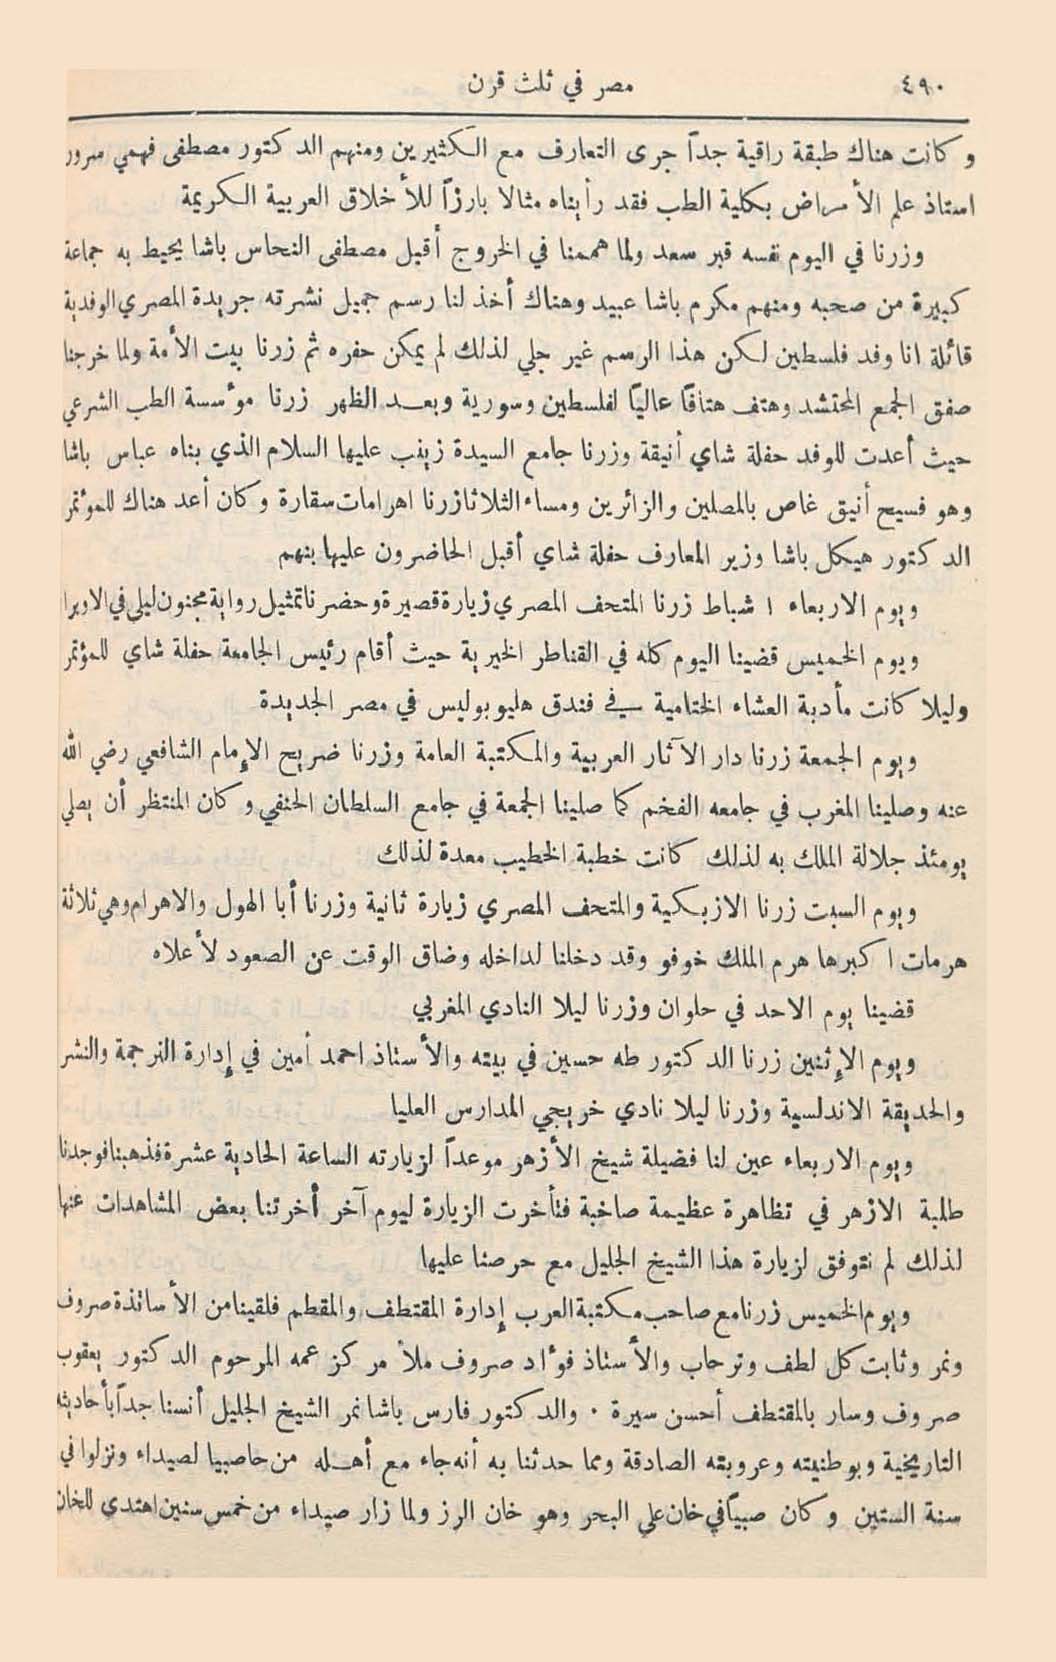 ٤٩٠ مصر في ثلث قرن
وكانت هناك طبقة راقية جداً جرى التعارف مع الكثيرين ومنهم الدكتور مصطفى فهمي سرور
استاذ علم الأمراض بكلية الطب فقد رأيناه مثالا بارزاً للأخلاق العربية الكريمة
وزرنا في اليوم نفسه قبر سعد ولما هممنا في الخروج أقبل مصطفى النحاس باشا يحيط به جماعة
كبيرة من صحبه ومنهم مكرم باشا عبيد وهناك أخذ لنا رسم جميل نشرته جريدة المصري الوفدية
قائلة انا وفد فلسطين لكن هذا الرسم غير جلي لذلك لم يمكن حفره ثم زرنا بيت الأمة ولما خرجنا
صفق الجمع المحتشد وهتف هتافاً عالياً لفلسطين وسورية وبعد الظهر زرنا موٴسسة الطب الشرعي
حيث أعدت للوفد حفلة شاي أنيقة وزرنا جامع السيدة زينب عليها السلام الذي بناه عباس باشا
وهو فسيح أنيق غاص بالمصلين والزائرين ومساء الثلاثا زرنا اهرامات سقارة وكان أعد هناك للموٴتمر
الدكتور هيكل باشا وزير المعارف حفلة شاي أقبل الحاضرون عليها بنهم
ويوم الاربعاء ١ شباط زرنا المتحف المصري زيارة قصيرة وحضرنا تمثيل رواية مجنون ليلى في الاوبرا
ويوم الخميس قضينا اليوم كله في القناطر الخيرية حيث أقام رئيس الجامعة حفلة شاي للمؤتمر
وليلا كانت مأدبة العشاء الختامية في فندق هليوبوليس في مصر الجديدة
ويوم الجمعة زرنا دار الآثار العربية والمكتبة العامة وزرنا ضريح الإمام الشافعي رضي الله
عنه وصلينا المغرب في جامعه الفخم كما صلينا الجمعة في جامع السلطان الحنفي وكان المنتظر أن يصلي
يومئذ جلالة الملك به لذلك كانت خطبة الخطيب معدة لذلك
ويوم السبت زرنا الازبكية والمتحف المصري زيارة ثانية وزرنا أبا الهول والاهرام وهي ثلاثة
هرمات اكبرها هرم الملك خوفو وقد دخلنا لداخله وضاق الوقت عن الصعود لأعلاه
قضينا يوم الاحد في حلوان وزرنا ليلا النادي المغربي
ويوم الإثنين زرنا الدكتور طه حسين في بيته والأستاذ احمد أمين في إدارة الترجمة والنشر
والحديقة الاندلسية وزرنا ليلا نادي خريجي المدارس العليا
ويوم الاربعاء عين لنا فضيلة شيخ الأزهر موعداً لزيارته الساعة الحادية عشرة فذهبنا فوجدنا
طلبة الازهر في تظاهرة عظيمة صاخبة فتأخرت الزيارة ليوم آخر أخرتنا بعض المشاهدات عنها
لذلك لم نتوفق لزيارة هذا الشيخ الجليل مع حرصنا عليها
ويوم الخميس زرنا مع صاحب مكتبة العرب إدارة المقتطف والمقطم فلقينا من الأساتذة صروف
ونمر وثابت كل لطف وترحاب والأستاذ فوٴاد صروف ملأ مركز عمه المرحوم الدكتور يعقوب
صروف وسار بالمقتطف أحسن سيرة . والدكتور فارس باشا نمر الشيخ الجليل أنسنا جداً بأحاديثه
التاريخية وبوطنيته وعروبته الصادقة ومما حدثنا به أنه جاء مع أهله من حاصبيا لصيداء ونزلوا في
سنة الستين وكان صبياً في خان على البحر وهو خان الرز ولما زار صيداء من خمس سنين اهتدى للخان